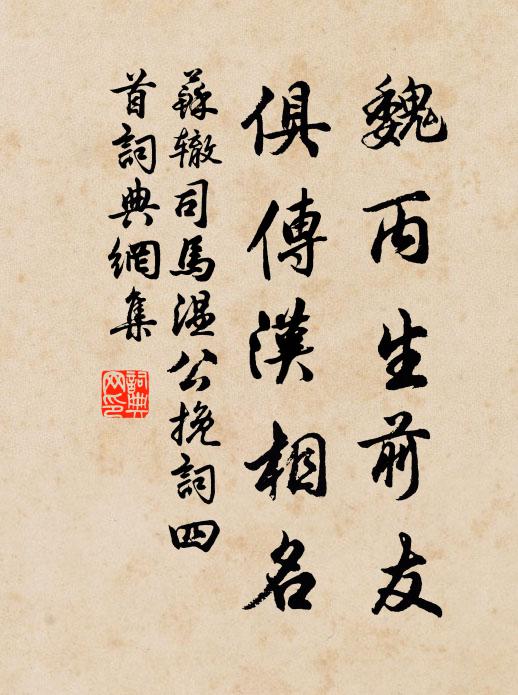 魏丙生前友
俱傳漢相名
蘇辙司馬溫公挽詞四
首詞典網集
詞典
网印